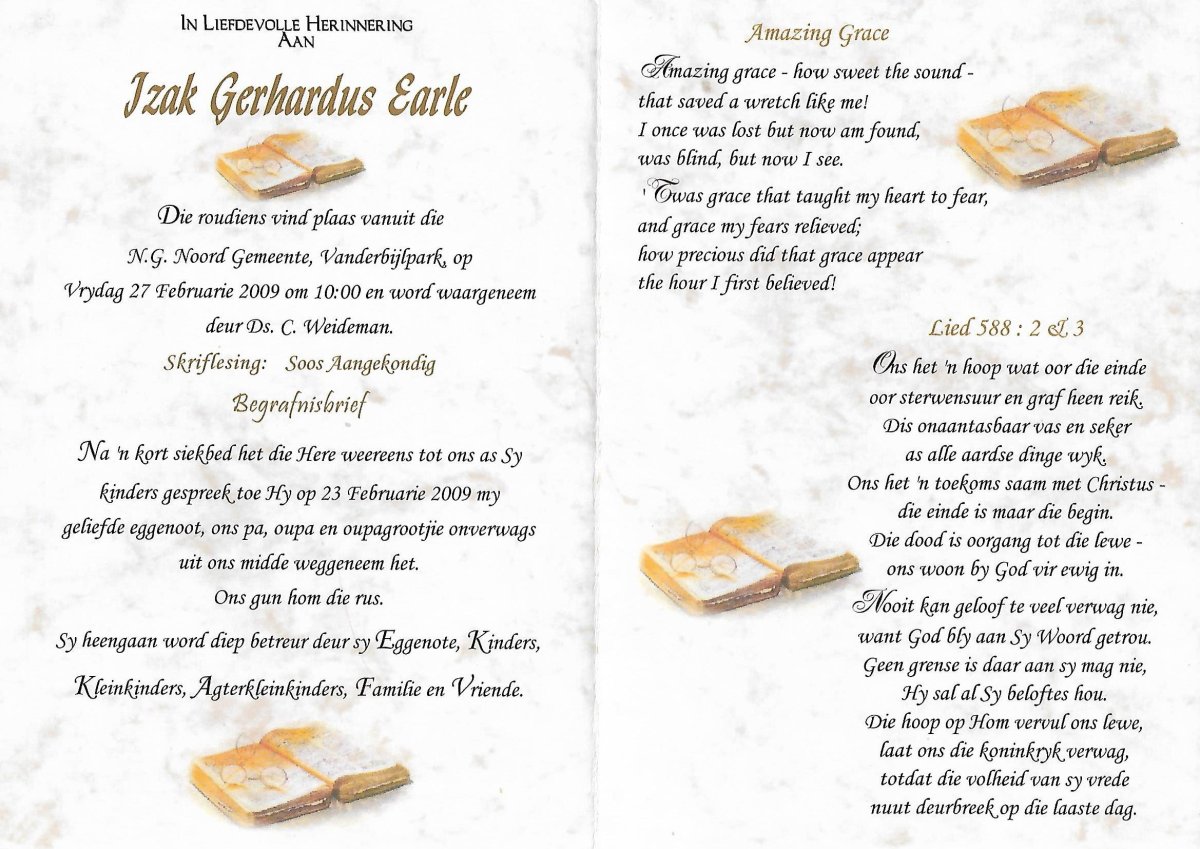 In Liefdevolle Herinnering
Aan
Izak Gerhardus Earle
Die roudiens vind plaas vanuit die
N.G. Noord Gemeente, Vanderbijlpark, op
Vrydag 27 Februarie 2009 om 10:00 en word waargeneem
deur Ds. C. Weideman.
Skriflesing: Soos Aangekondig
Begrafnisbrief
Na 'n kort siekbed het die Here weereens tot ons as Sy
kinders gespreek toe Hy op 23 Februarie 2009 my
geliefde eggenoot, ons pa, oupa en oupagrootjie onverwags
uit ons midde weggeneem het.
Ons gun hom die rus.
Sy heengaan word diep betreur deur sy Eggenote, Kinders,
Kleinkinders, Agterkleinkinders, Familie en Vriende.
Amazing Grace
Amazing grace - how sweet the sound -
that saved a wretch like me!
I once was lost but now am found,
was blind, but now I see.
'Twas grace that taught my heart to fear,
and grace my fears relieved;
how precious did that grace appear
the hour I first believed!
Lied 588 : 2 & 3
Ons het 'n hoop wat oor die einde
oor sterwensuur en graf heen reik.
Dis onaantasbaar vas en seker
as alle aardse dinge wyk.
Ons het 'n toekoms saam met Christus -
die einde is maar die begin.
Die dood is oorgang tot die lewe -
ons woon by God vir ewig in.
Nooit kan geloof te veel verwag nie,
want God bly aan Sy Woord getrou.
Geen grense is daar aan sy mag nie,
Hy sal al Sy beloftes hou.
Die hoop op Hom vervul ons lewe,
laat ons die koninkryk verwag,
totdat die volheid van sy vrede
nuut deurbreek op die laaste dag.